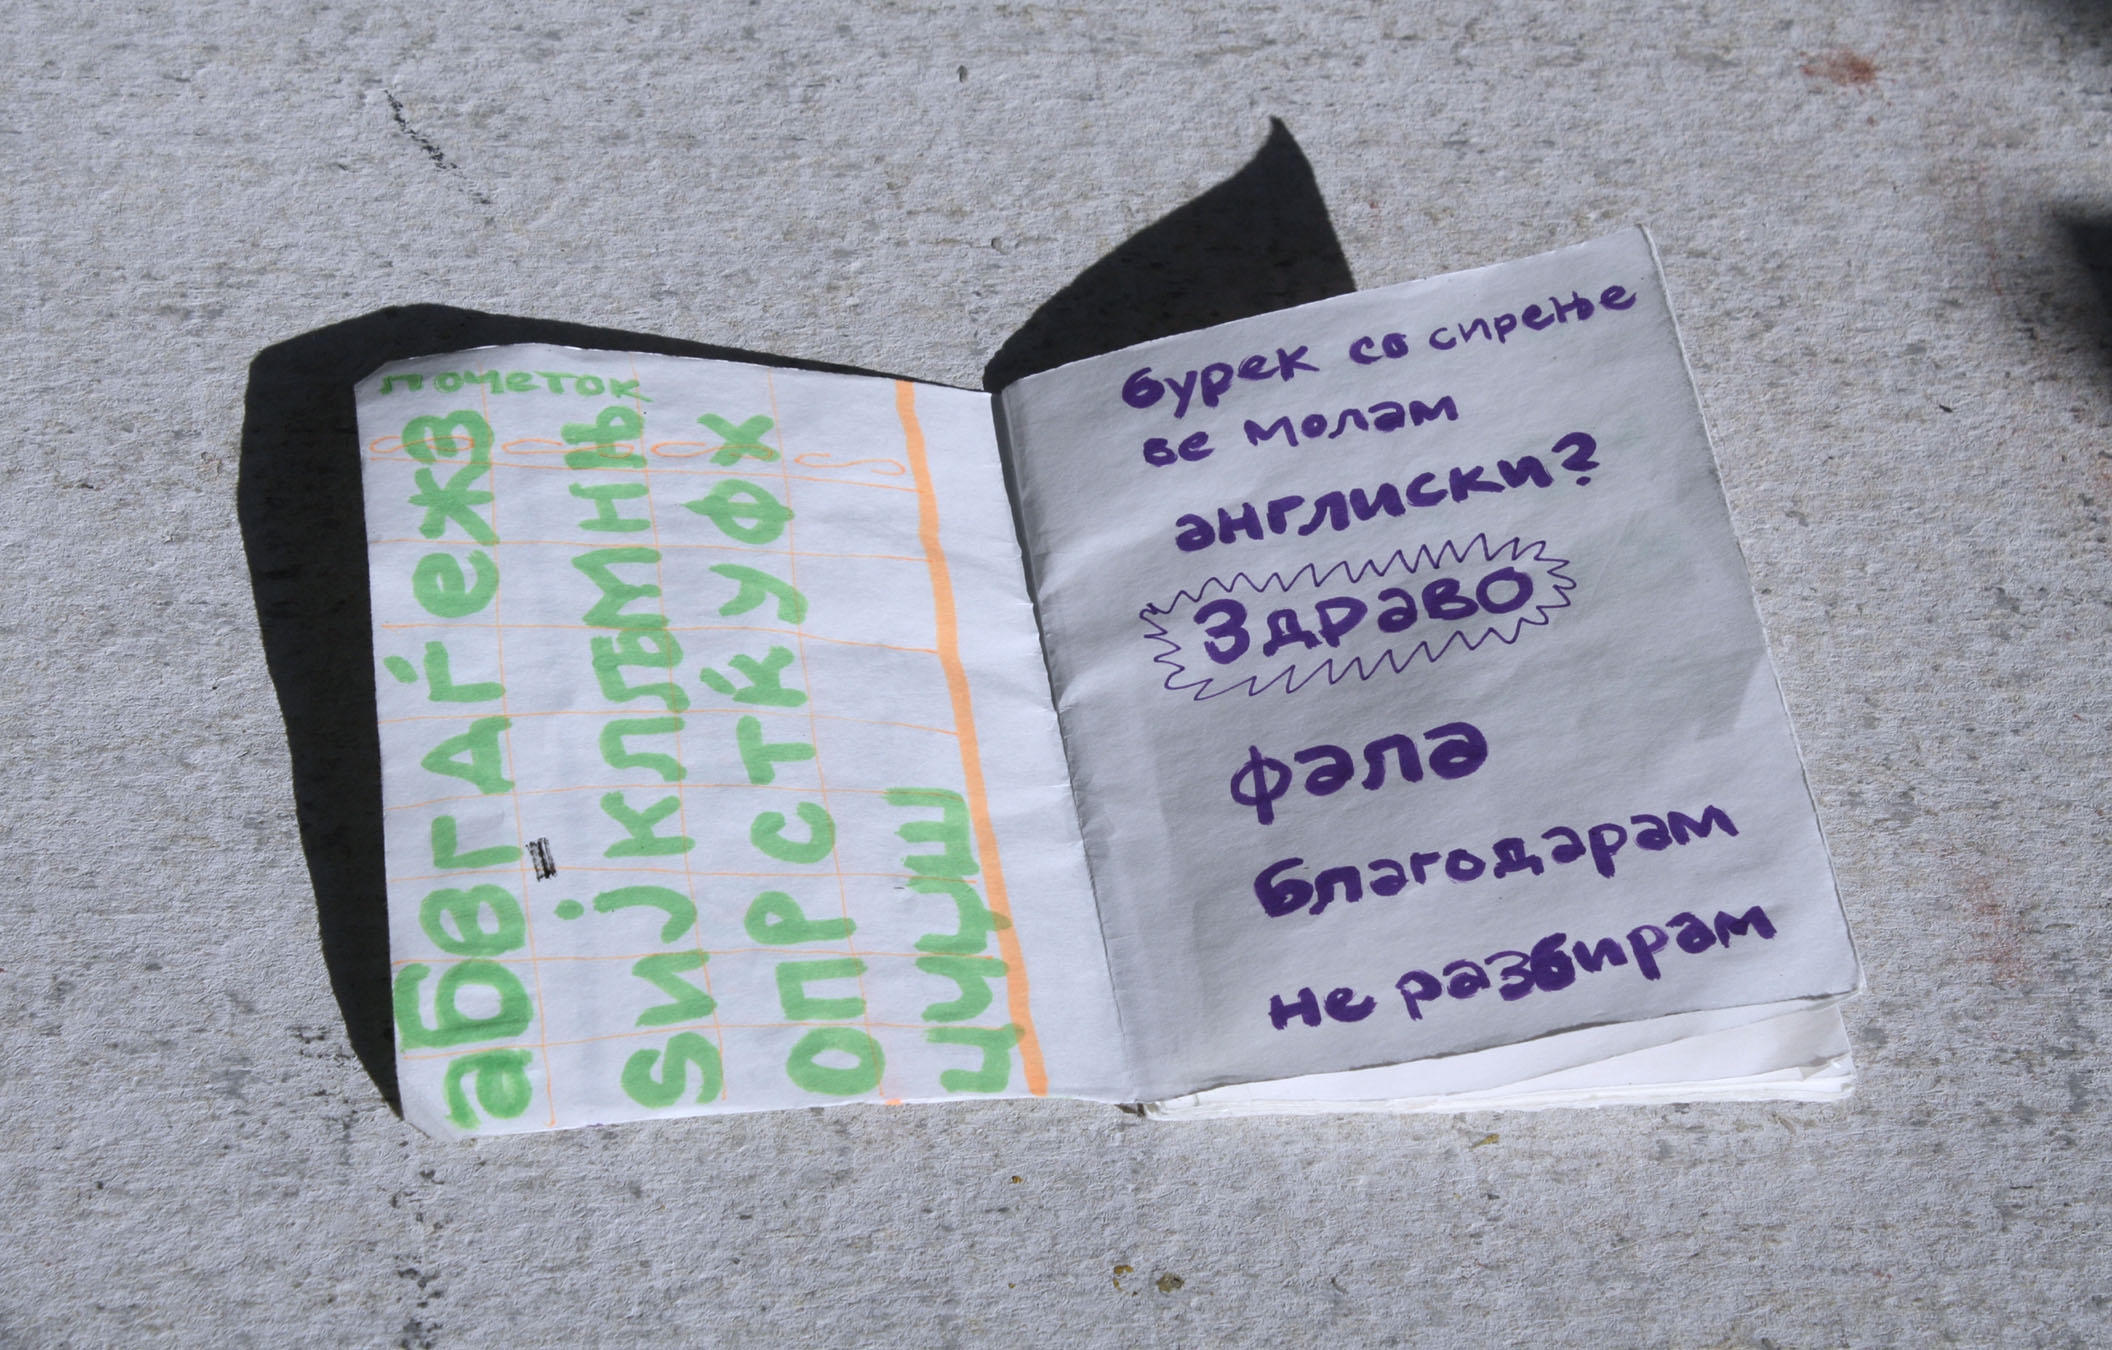 почеток
абвгдѓежз
ѕијклљмнњ
опрстќуфх
цчџш
бурек со сирење
ве молам
англиски?
Здраво
фала
благодарам
не разбирам